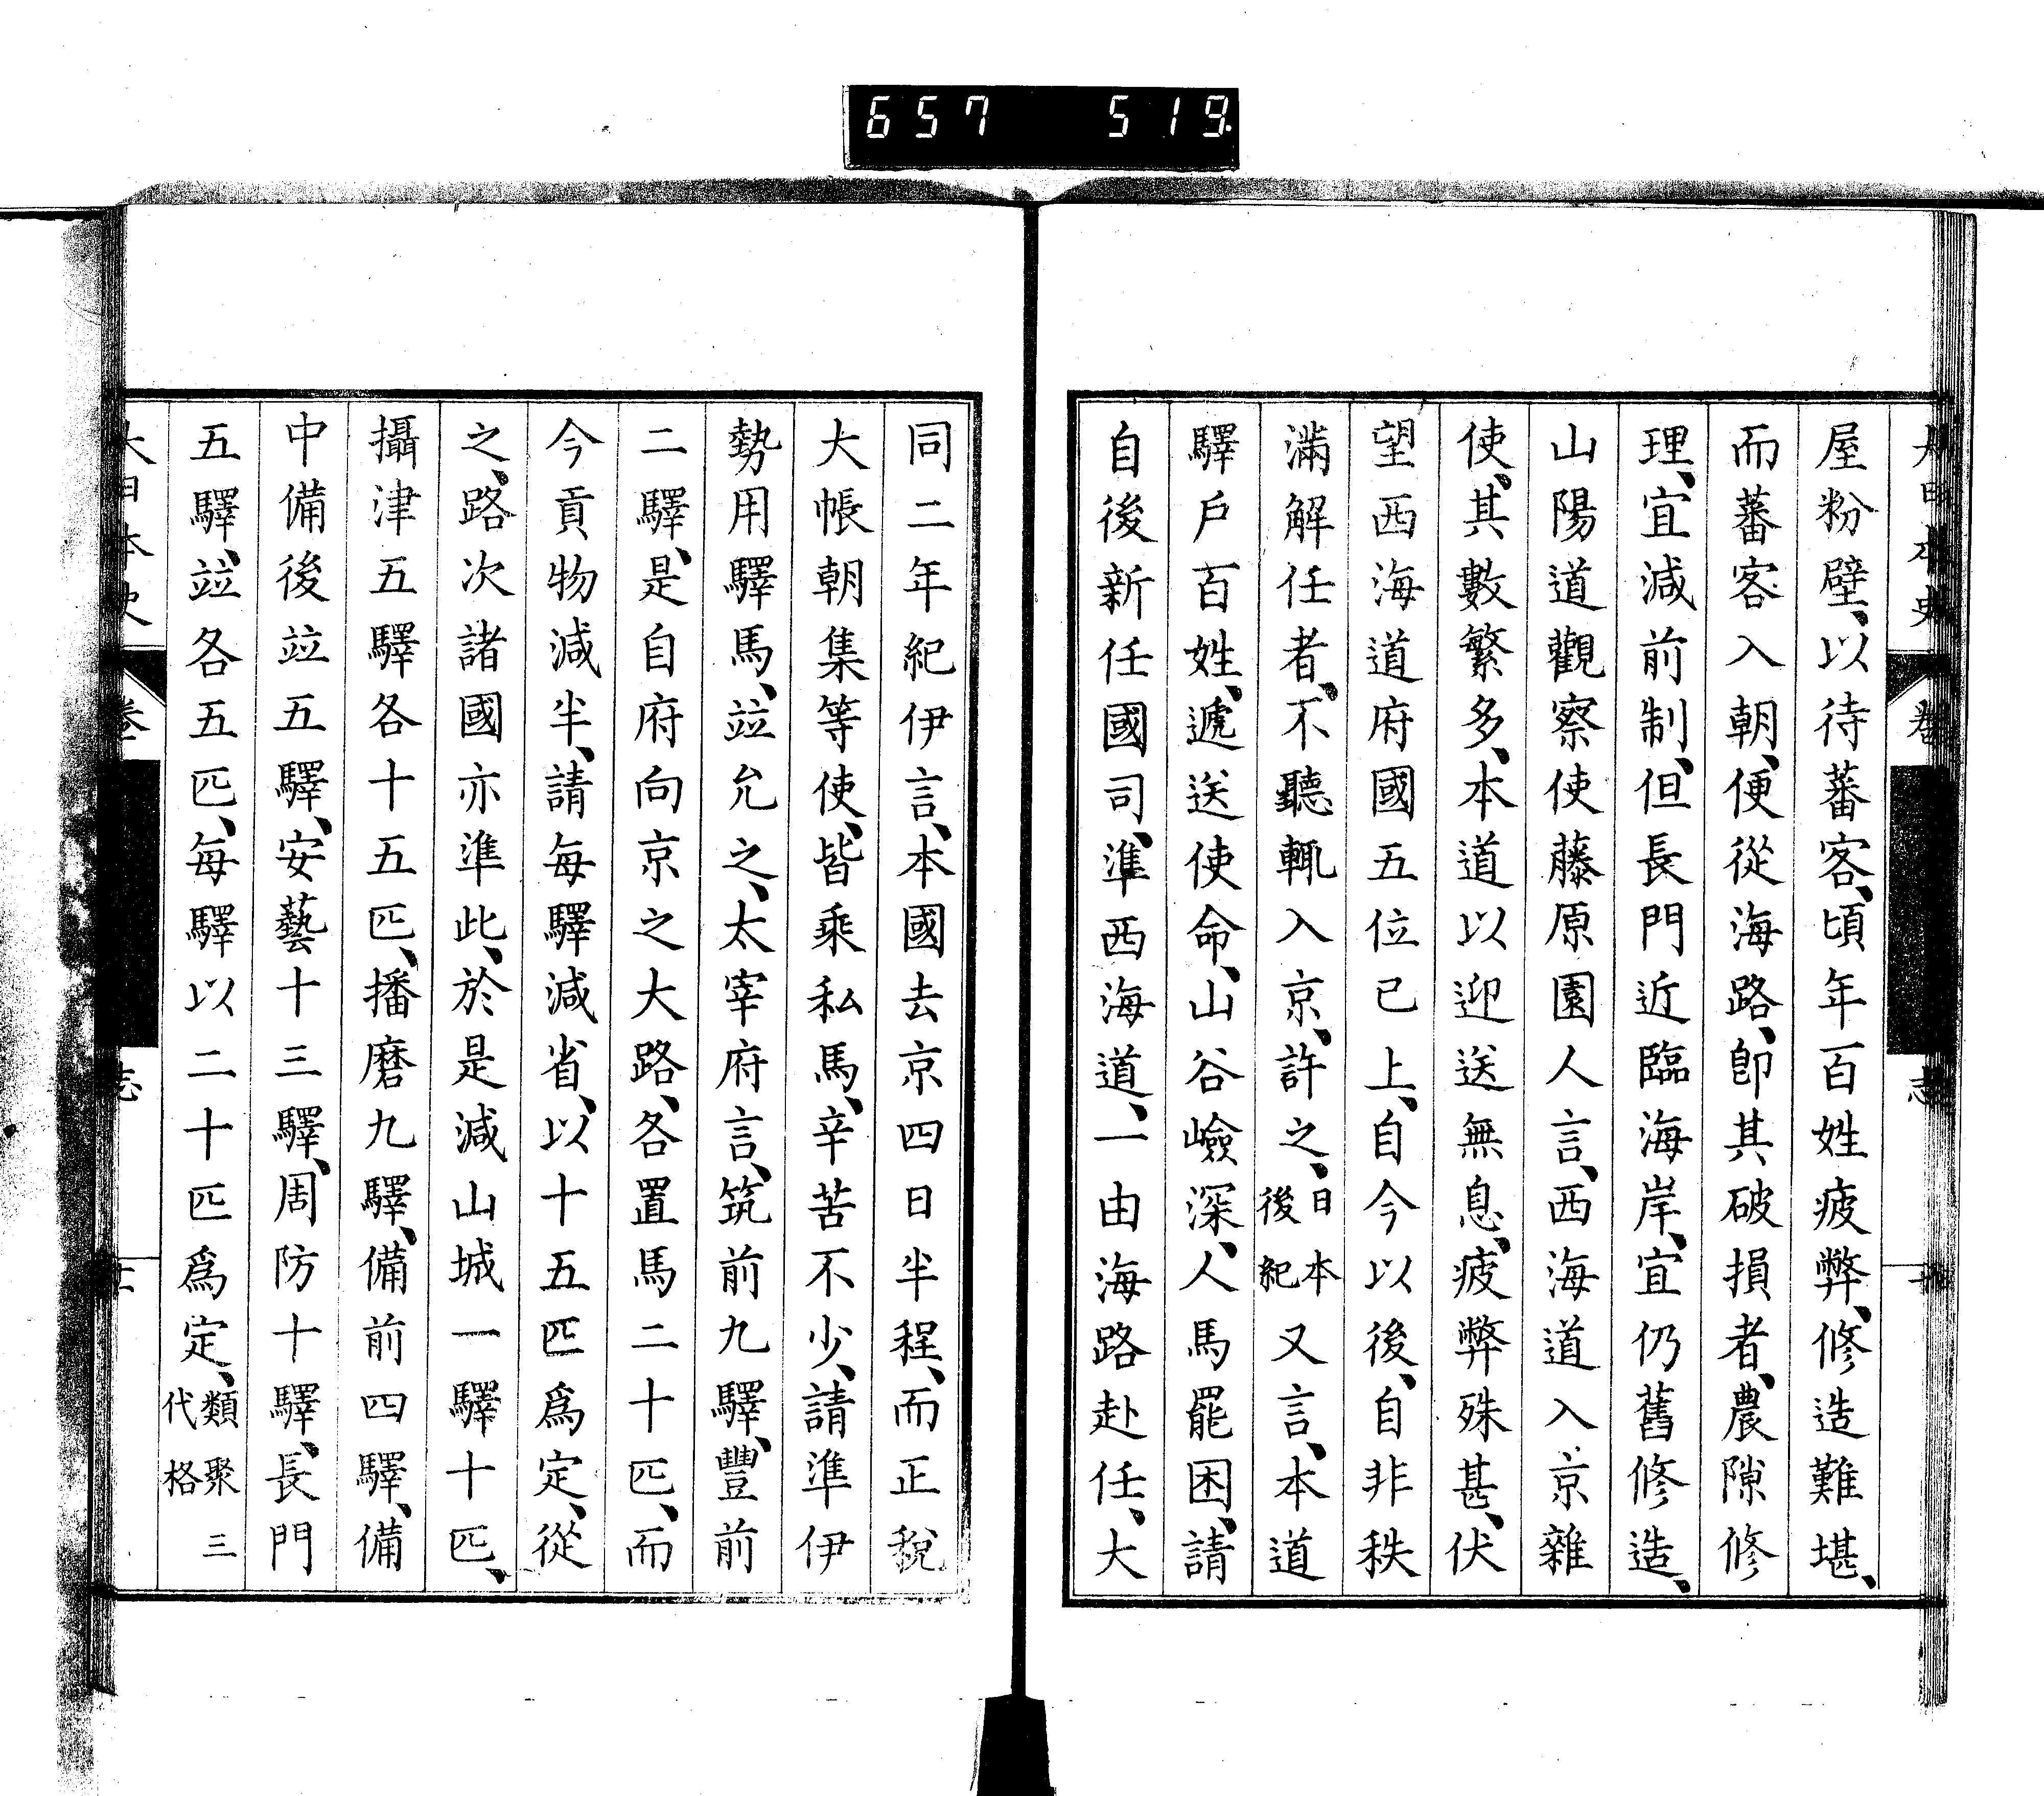 657 519.
大日本史 卷 志
屋粉壁、以待蕃客、頃年百姓疲弊、修造難堪、
而蕃客入朝、便從海路、卽其破損者、農隙修
理、宜減前制、但長門近臨海岸、宜仍舊修造、
山陽道觀察使藤原園人言、西海道入京雜
使、其數繁多、本道以迎送無息、疲弊殊甚、伏
望西海道府國五位已上、自今以後、自非秩
滿解任者、不聽輒入京、許之、日本後紀又言、本道
驛戶百姓、遞送使命、山谷嶮深、人馬罷困、請
自後新任國司、準西海道、一由海路赴任、大
同二年紀伊言、本國去京四日半程、而正稅
大帳朝集等使、皆乘私馬、辛苦不少、請準伊
勢用驛馬、竝允之、太宰府言、筑前九驛、豐前
二驛、是自府向京之大路、各置馬二十匹、而
今貢物減半、請每驛減省、以十五匹爲定、從
之、路次諸國亦準此、於是減山城一驛十匹、
攝津五驛各十五匹、播磨九驛、備前四驛、備
中備後竝五驛、安藝十三驛、周防十驛、長門
五驛、竝各五匹、每驛以二十匹爲定、類聚三代格
大日本史 卷 志